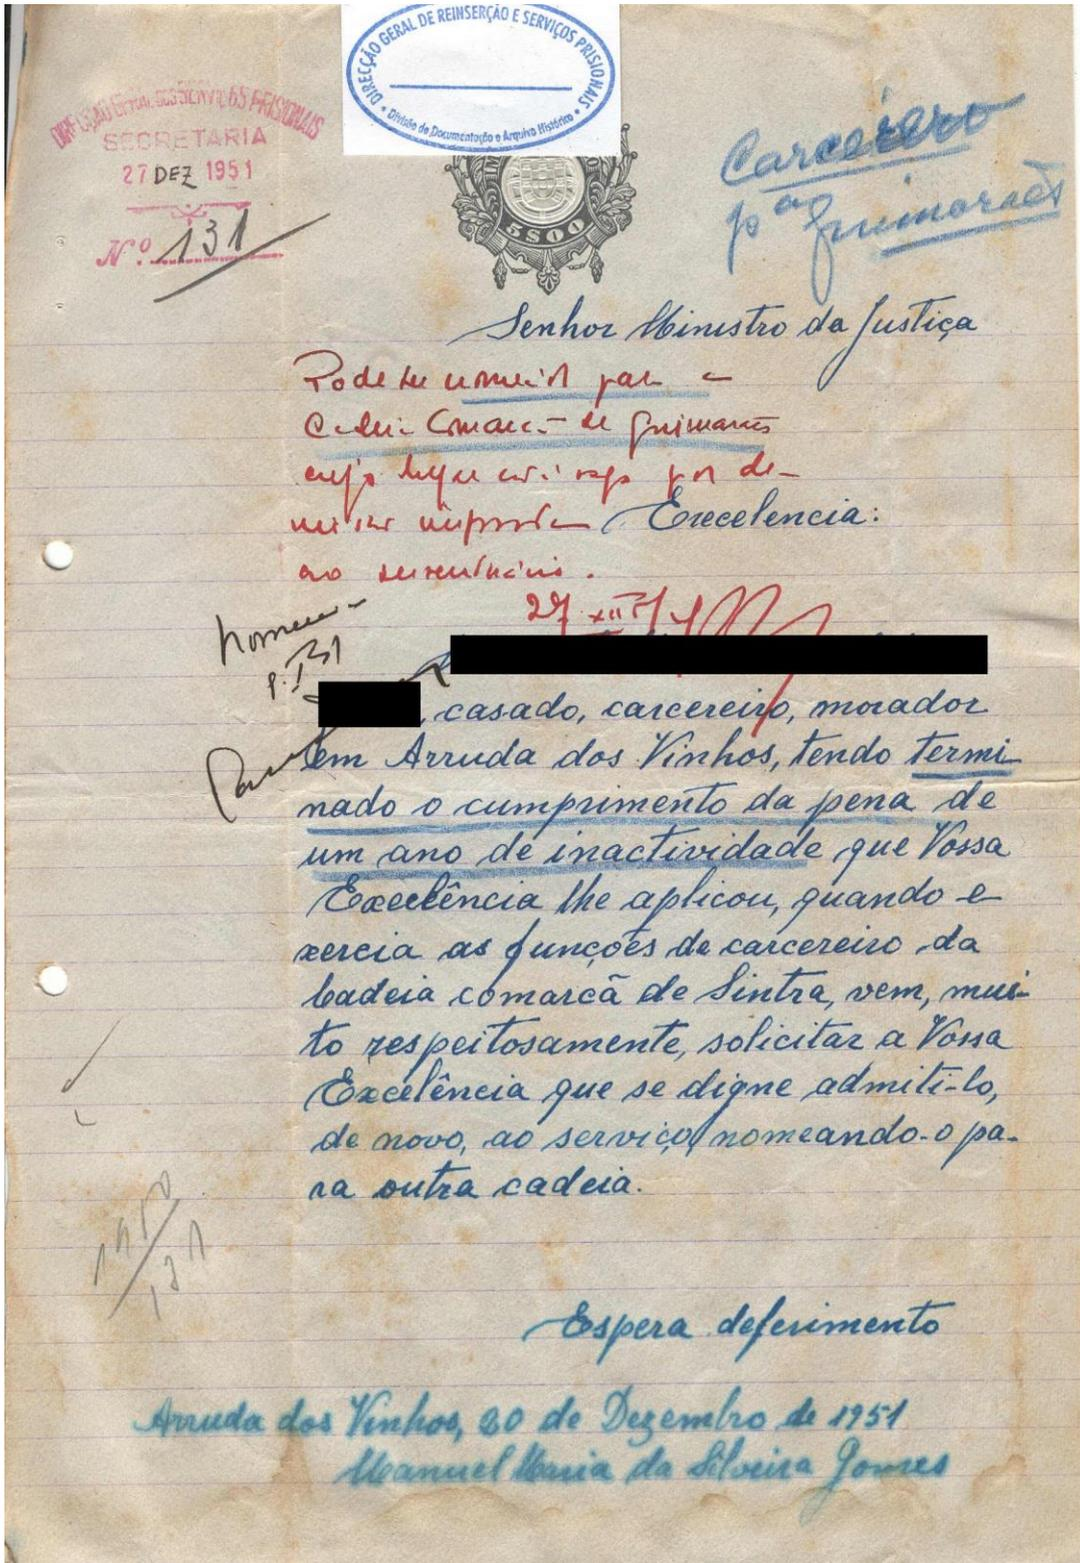 DIRECÇÃO GERAL DE REINSERÇÃO E SERVIÇOS PRISIONAIS
Divisão de Documentação e Arquivo Histórico
DIRECÇÃO GERAL DOS SERVIÇOS PRISIONAIS
SECRETARIA
27 DEZ 1951
Nº 131
5$00
Carcereiro
pª Guimarães
Senhor Ministro da Justiça
Pode ser nomeado para a
Cadeia Comarcã de Guimarães
cujo lugar está vago por de-
Excelencia:
ao serventuário.
27 XII 51
, casado, carcereiro, morador
em Arruda dos Vinhos, tendo termi-
nado o cumprimento da pena de
um ano de inactividade que Vossa
Excelência lhe aplicou, quando e-
xercia as funções de carcereiro da
Cadeia comarcã de Sintra, vem, mui-
to respeitosamente, solicitar a Vossa
Excelência que se digne admiti-lo,
de novo, ao serviço, nomeando-o pa-
ra outra cadeia.
Espera deferimento
Arruda dos Vinhos, 20 de Dezembro de 1951
Manuel Maria da Silveira Gomes